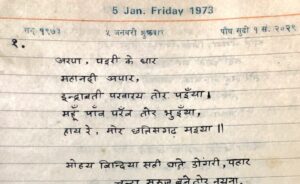 5 Jan. Friday 1973
सन् १९७३ ५ जनवरी शुक्रवार पौष सुदी १ सं. २०२९
१.
अरपा, पइरी के धार
महानदी अपार,
इन्द्रावती पखारय तोर पइँया।
महूँ पाँव परँव तोर भुइँया,
हाय रे, मोर छत्तिसगढ़ मइया।।
सोहय बिन्दिया सही घाते डोंगरी, पहार
चन्दा सुरुज बने तोर नयना,